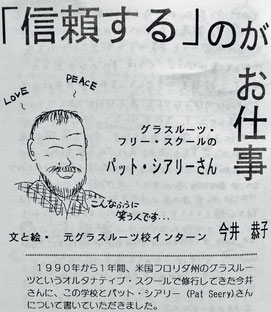 「信頼する」のが
お仕事
LOVE
PEACE
グラスルーツ・
フリー・スクールの
パット・シアリーさん
こんなふうに
笑う人です...
文と絵・ 元グラスルーツ校インターン 今井 恭子
１９９０年から１年間、米国フロリダ州のグラスルー
ツというオルタナティブ・スクールで修行してきた今井
さんに、この学校とパット・シアリー（Pat Seery)さん
について書いていただきました。